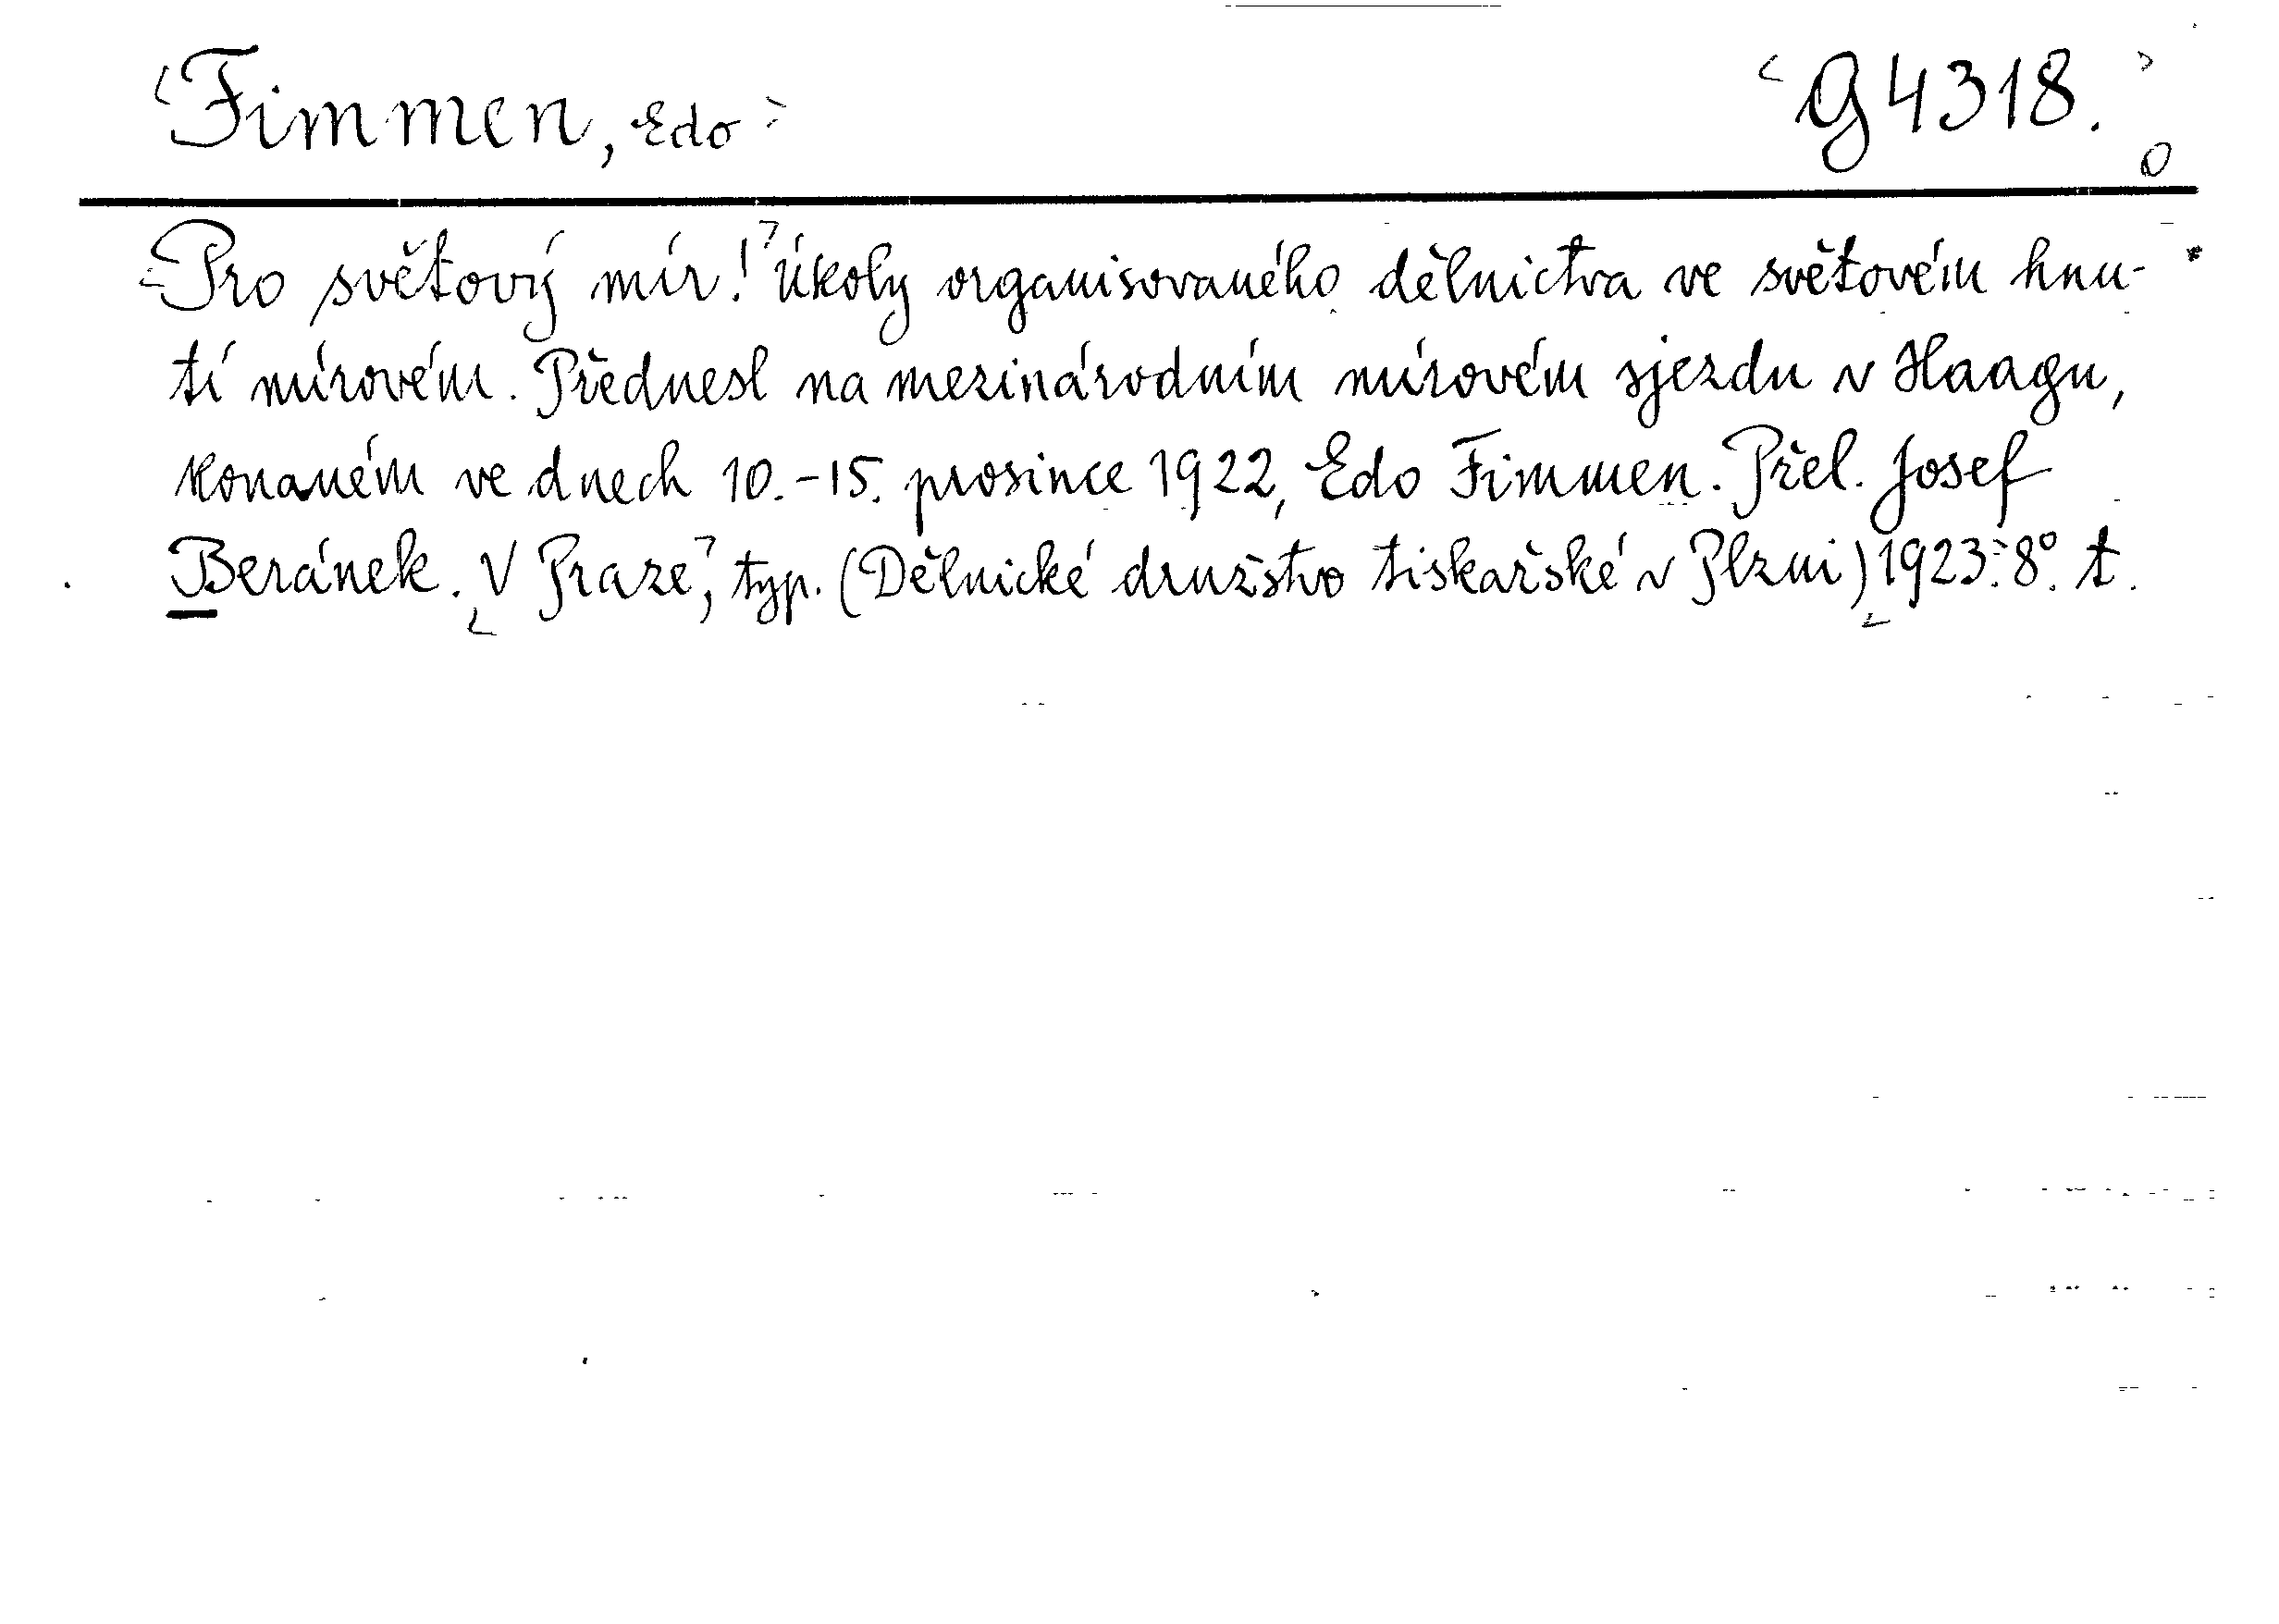 Fimmen, Edo
G 4318.
Pro světový mír! Úkoly organisovaného dělnictva ve světovém hnu-
tí mírovém. Přednesl na mezinárodním mírovém sjezdu v Haagu,
konaném ve dnech 10.-15. prosince 1922, Edo Fimmen. Přel. Josef
Beránek. V Praze, typ. (Dělnické družstvo tiskařské v Plzni) 1923. 8°. t.